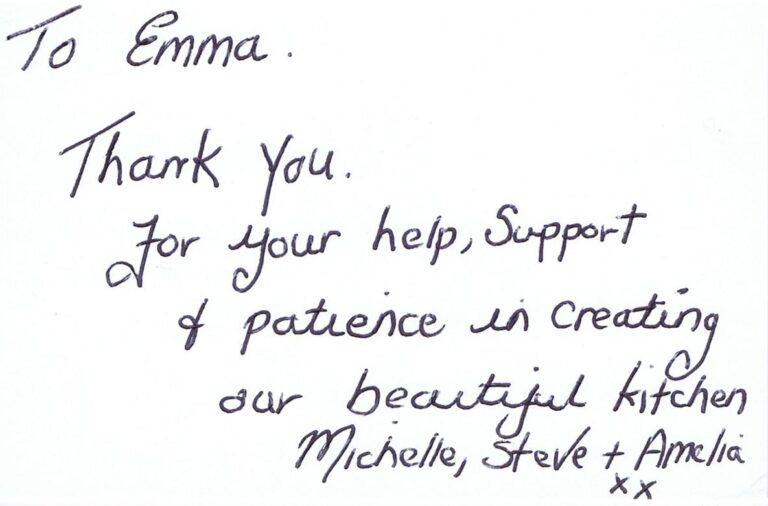 To Emma.
Thank You.
For your help, Support
& patience in creating
our beautiful kitchen
Michelle, Steve + Amelia
xx